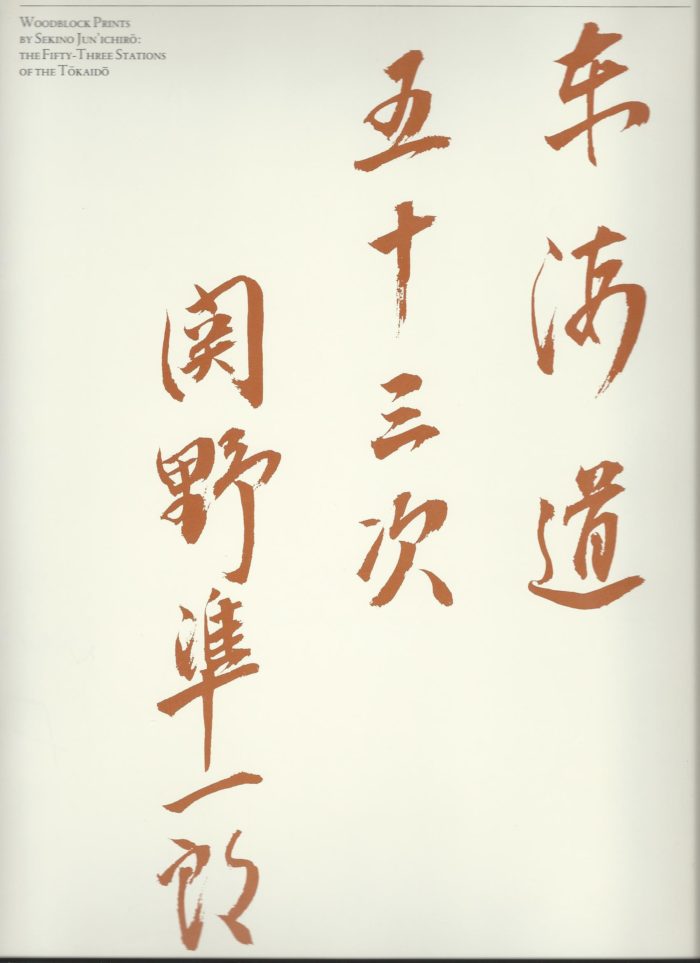 WOODBLOCK PRINTS
BY SEKINO JUN'ICHIRŌ:
THE FIFTY-THREE STATIONS
OF THE TŌKAIDŌ
东海道
五十三次
関野準一郎